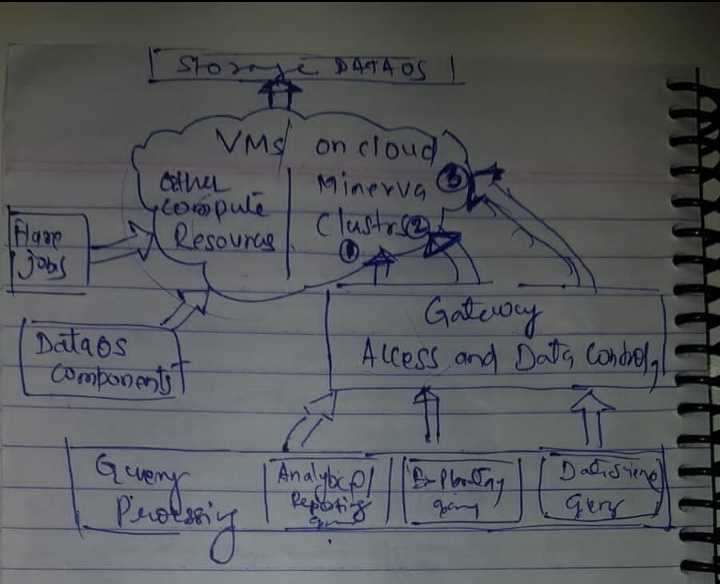 Storage DATAOS
VMs on cloud
Other compute Resources
Minerva ③
Clustrs ②
①
Flare jobs
DataOS components
Gateway
Access and Data Control
Query Processing
Analytical/ Reporting Query
Exploratory Query
Data Science Query